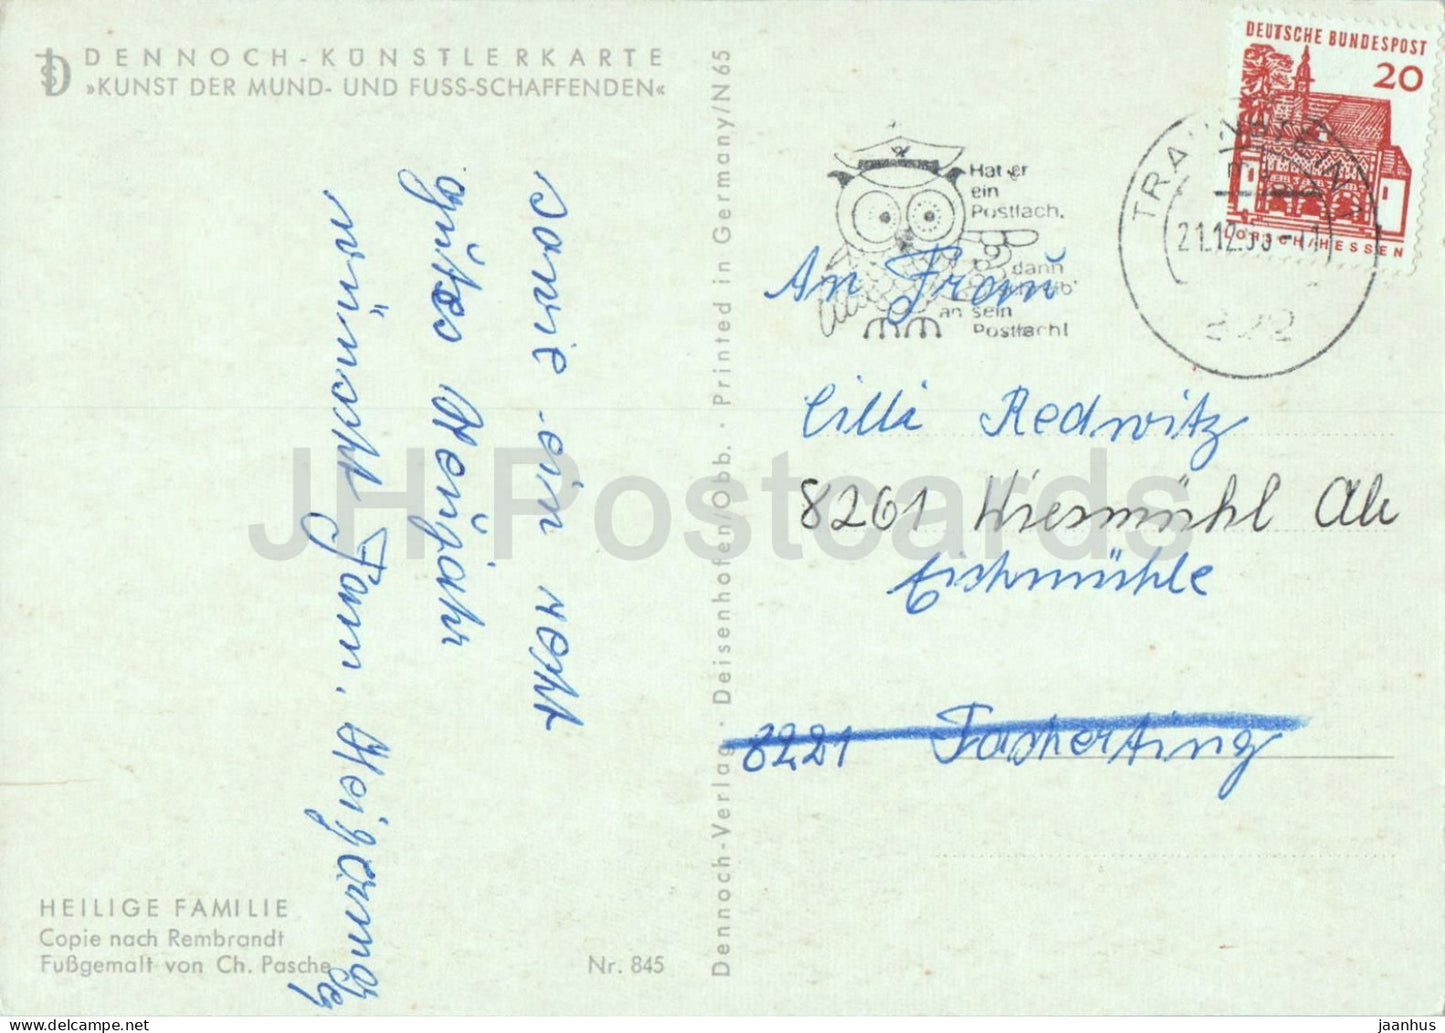 DENNOCH-KÜNSTLERKARTE
»KUNST DER MUND- UND FUSS-SCHAFFENDEN«
sowie ein recht
gutes Neujahr
wünscht Fam.
HEILIGE FAMILIE
Copie nach Rembrandt
Fußgemalt von Ch. Pasche
Nr. 845
Dennoch-Verlag · Deisenhofen/Obb. · Printed in Germany/N 65
DEUTSCHE BUNDESPOST
20
LORSCH/HESSEN
Hat er
ein
Postfach,
dann
an sein
Postfach!
21.12.
822
An Frau
Cilli Redwitz
8261 Wiesmühl
Eichmühle
8221 Tacherting
JH Postcards
www.delcampe.net
jaanhus